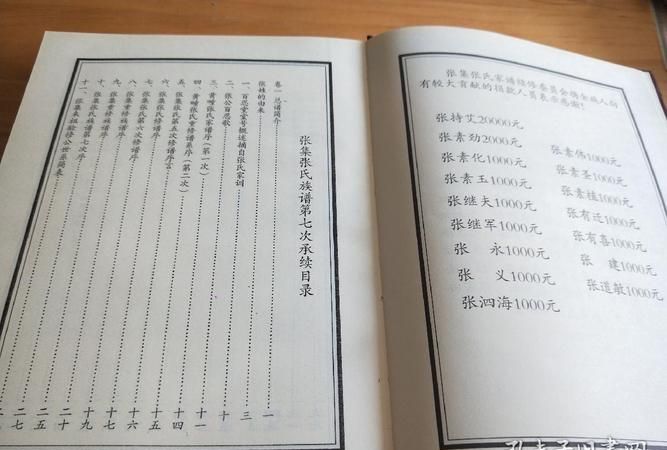 张集张氏族谱第七次承续目录
卷一 总谱简介
张姓的由来……一
一、百忍堂堂号概述摘自张氏家训……三
二、张公百忍歌……十
三、黄疃张氏家谱序（第一次）……十一
四、黄疃张氏重修谱系序（第二次）……十四
五、张集张氏第五次修谱序言
张集张氏修谱序
张集张氏第六次修谱序
张集重修族谱序
张集重修族谱序
张集张氏族谱第七次序
十一、张集来祖 修公世系简表
张集张氏家谱续修委员会携全族人向
有较大贡献的捐款人员表示感谢！
张持艾20000元
张素劲2000元 张素伟1000元
张素化1000元 张素圣1000元
张素玉1000元 张素桂1000元
张继夫1000元 张有迁1000元
张继军1000元 张有喜1000元
张 永1000元 张 建1000元
张 义1000元 张道敏1000元
张泗海1000元